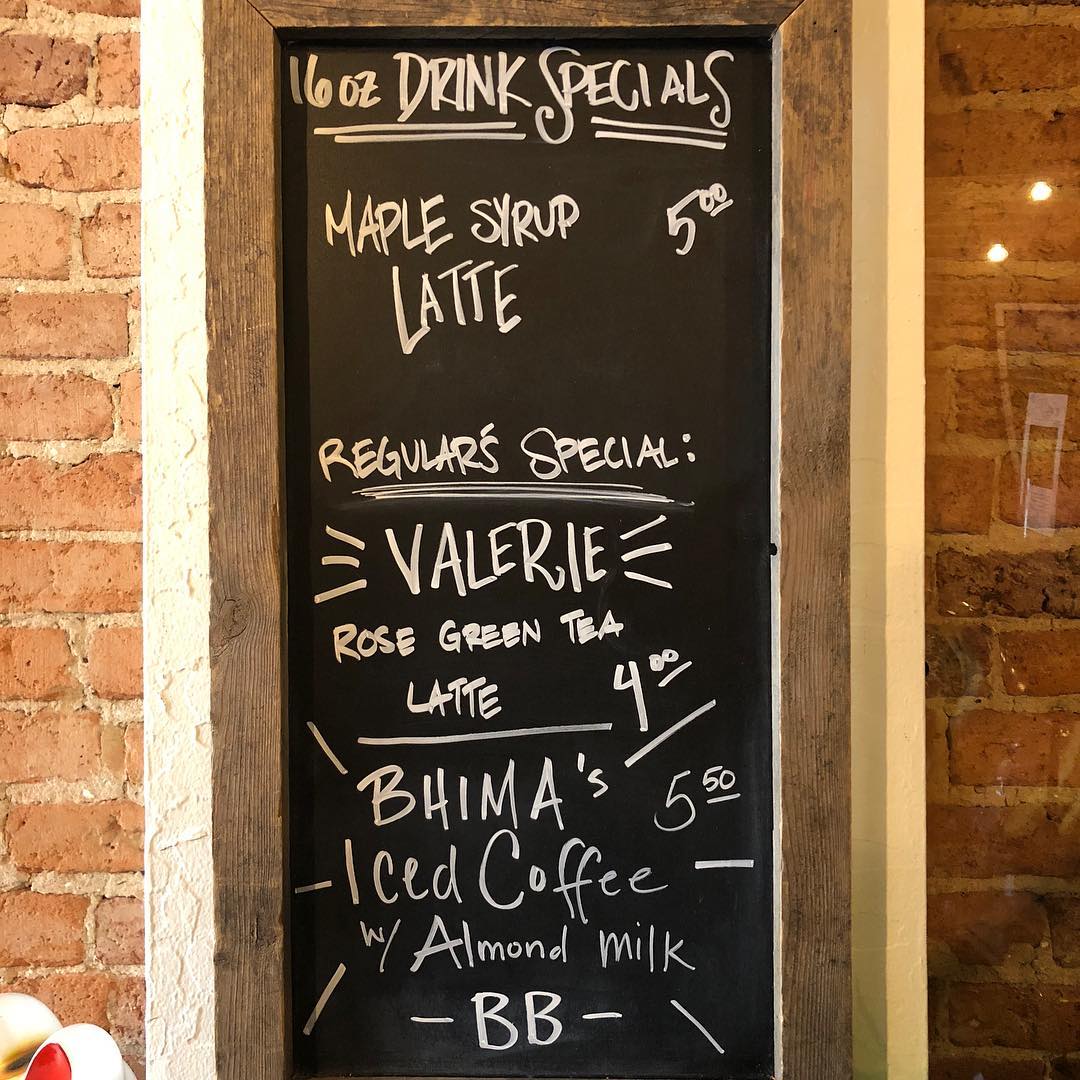 16 oz DRINK SPECIALS
MAPLE SYRUP 5.00
LATTE
REGULAR'S SPECIAL:
VALERIE
ROSE GREEN TEA
LATTE 4.00
BHIMA's 5.50
Iced Coffee
w/ Almond milk
- BB -